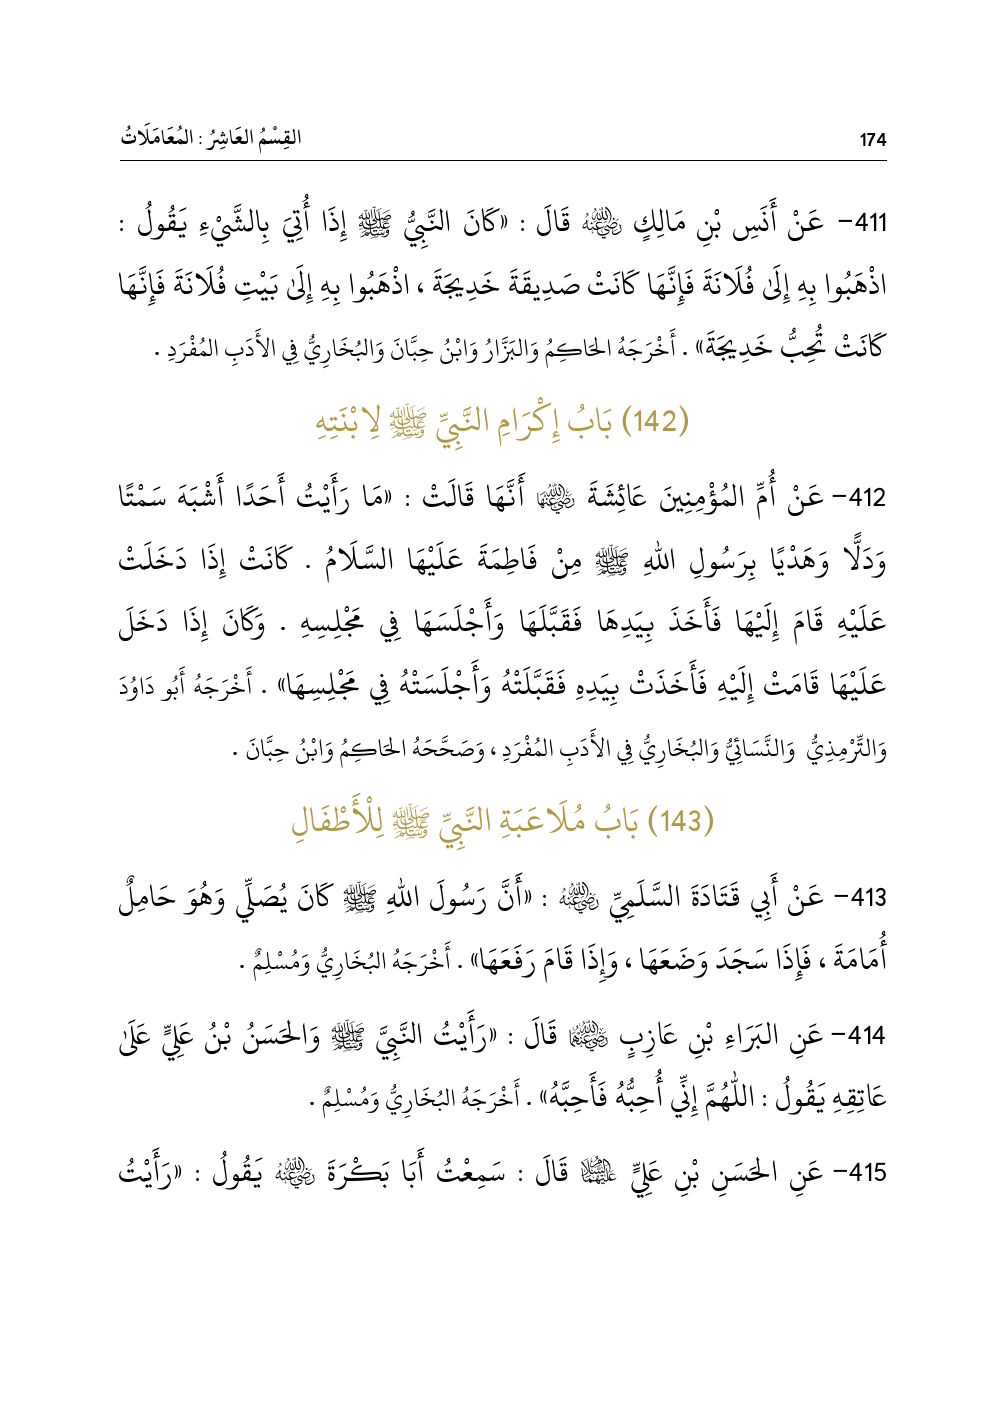 174 القِسْمُ العَاشِرُ : المُعَامَلَاتُ
411- عَنْ أَنَسِ بْنِ مَالِكٍ رضي الله عنه قَالَ : «كَانَ النَّبِيُّ ﷺ إِذَا أُتِيَ بِالشَّيْءِ يَقُولُ :
اذْهَبُوا بِهِ إِلَىٰ فُلَانَةَ فَإِنَّهَا كَانَتْ صَدِيقَةَ خَدِيجَةَ ، اذْهَبُوا بِهِ إِلَىٰ بَيْتِ فُلَانَةَ فَإِنَّهَا
كَانَتْ تُحِبُّ خَدِيجَةَ» . أَخْرَجَهُ الحَاكِمُ وَالبَزَّارُ وَابْنُ حِبَّانَ وَالبُخَارِيُّ فِي الأَدَبِ المُفْرَدِ .
(142) بَابُ إِكْرَامِ النَّبِيِّ ﷺ لِابْنَتِهِ
412- عَنْ أُمِّ المُؤْمِنِينَ عَائِشَةَ رضي الله عنها أَنَّهَا قَالَتْ : «مَا رَأَيْتُ أَحَدًا أَشْبَهَ سَمْتًا
وَدَلًّا وَهَدْيًا بِرَسُولِ اللهِ ﷺ مِنْ فَاطِمَةَ عَلَيْهَا السَّلَامُ . كَانَتْ إِذَا دَخَلَتْ
عَلَيْهِ قَامَ إِلَيْهَا فَأَخَذَ بِيَدِهَا فَقَبَّلَهَا وَأَجْلَسَهَا فِي مَجْلِسِهِ . وَكَانَ إِذَا دَخَلَ
عَلَيْهَا قَامَتْ إِلَيْهِ فَأَخَذَتْ بِيَدِهِ فَقَبَّلَتْهُ وَأَجْلَسَتْهُ فِي مَجْلِسِهَا» . أَخْرَجَهُ أَبُو دَاوُدَ
وَالتِّرْمِذِيُّ وَالنَّسَائِيُّ وَالبُخَارِيُّ فِي الأَدَبِ المُفْرَدِ ، وَصَحَّحَهُ الحَاكِمُ وَابْنُ حِبَّانَ .
(143) بَابُ مُلَاعَبَةِ النَّبِيِّ ﷺ لِلْأَطْفَالِ
413- عَنْ أَبِي قَتَادَةَ السَّلَمِيِّ رضي الله عنه : «أَنَّ رَسُولَ اللهِ ﷺ كَانَ يُصَلِّي وَهُوَ حَامِلٌ
أُمَامَةَ ، فَإِذَا سَجَدَ وَضَعَهَا ، وَإِذَا قَامَ رَفَعَهَا» . أَخْرَجَهُ البُخَارِيُّ وَمُسْلِمٌ .
414- عَنِ البَرَاءِ بْنِ عَازِبٍ رضي الله عنهما قَالَ : «رَأَيْتُ النَّبِيَّ ﷺ وَالحَسَنُ بْنُ عَلِيٍّ عَلَىٰ
عَاتِقِهِ يَقُولُ : اللّٰهُمَّ إِنِّي أُحِبُّهُ فَأَحِبَّهُ» . أَخْرَجَهُ البُخَارِيُّ وَمُسْلِمٌ .
415- عَنِ الحَسَنِ بْنِ عَلِيٍّ عليهما السلام قَالَ : سَمِعْتُ أَبَا بَكْرَةَ رضي الله عنه يَقُولُ : «رَأَيْتُ